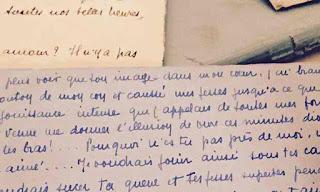 toutes nos belles heures,
amour ? Il n'y a pas
peux voir que ton image dans mon cœur, j'ai bran
outon de mon con et caressé mes fesses jusqu'à ce que
jouissance intense que j'appelais de toutes mes for
venue me donner l'illusion de vivre ces minutes
tes bras!.... Pourquoi n'es tu pas près de moi,
aimé!... Je voudrais jouir ainsi sous tes ca
udrais sucer ta queue et tes fesses superbes pen